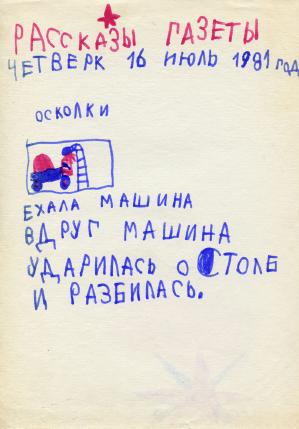 РАССКАЗЫ ГАЗЕТЫ
ЧЕТВЕРК 16 ИЮЛЬ 1981 ГОД
ОСКОЛКИ
ЕХАЛА МАШИНА
ВДРУГ МАШИНА
УДАРИЛАСЬ О СТОЛБ
И РАЗБИЛАСЬ.